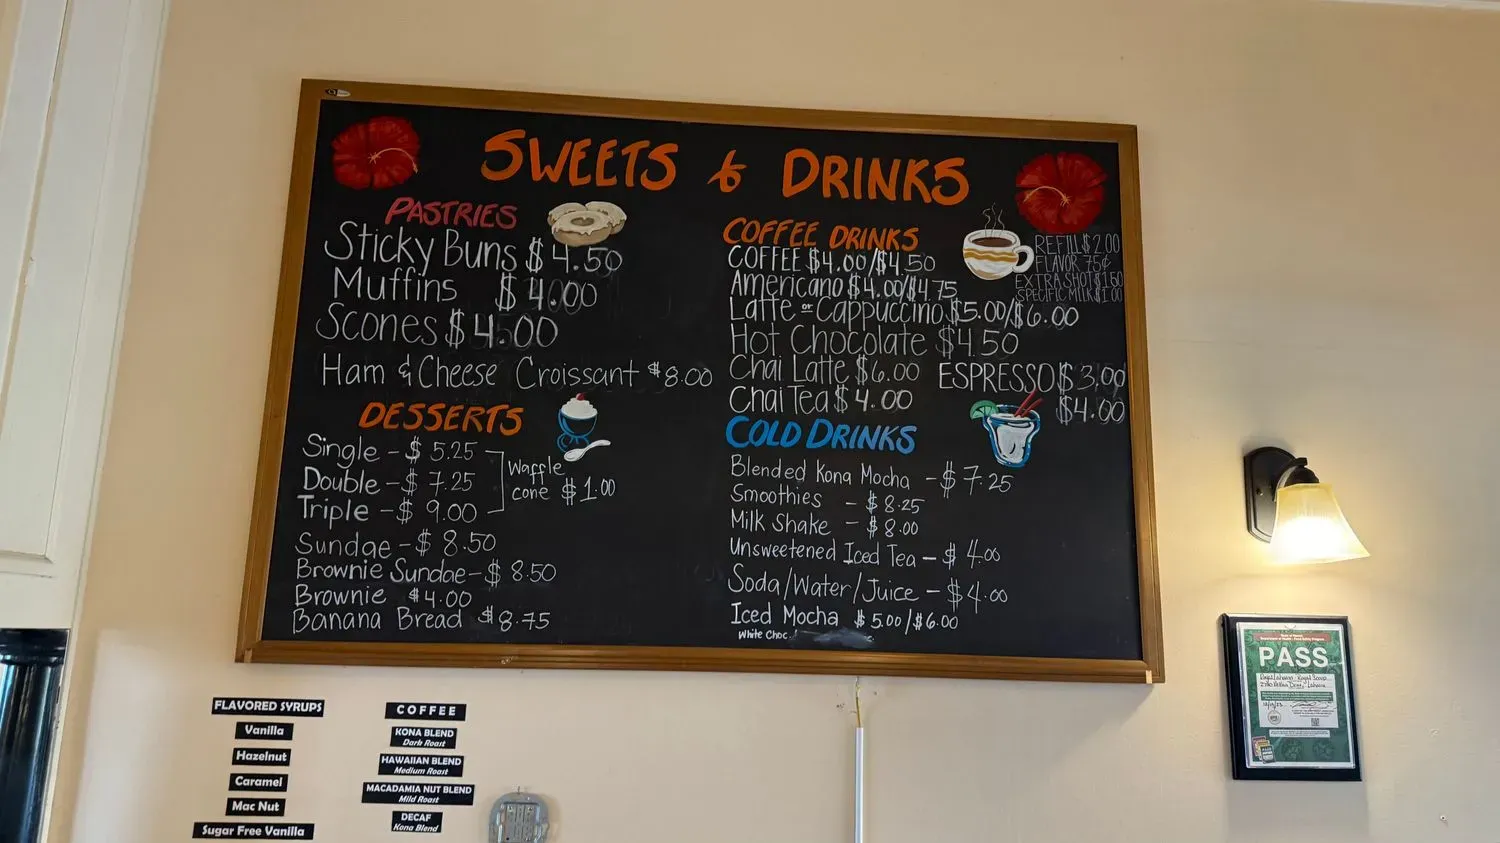 SWEETS & DRINKS
PASTRIES
Sticky Buns $4.50
Muffins $4.00
Scones $4.00
Ham & Cheese Croissant $8.00
DESSERTS
Single - $ 5.25
Double - $ 7.25
Triple - $ 9.00
Waffle
cone $1.00
Sundae - $ 8.50
Brownie Sundae - $ 8.50
Brownie $4.00
Banana Bread $8.75
COFFEE DRINKS
COFFEE $4.00/$4.50
Americano $4.00/$4.75
Latte or Cappuccino $5.00/$6.00
Hot Chocolate $4.50
Chai Latte $6.00
Chai Tea $4.00
REFILL $2.00
FLAVOR 75¢
EXTRA SHOT $1.50
SPECIFIC MILK $1.00
ESPRESSO $3.00/
$4.00
COLD DRINKS
Blended Kona Mocha - $7.25
Smoothies - $8.25
Milk Shake - $8.00
Unsweetened Iced Tea - $4.00
Soda/Water/Juice - $4.00
Iced Mocha $5.00/$6.00
White Choc.
FLAVORED SYRUPS
Vanilla
Hazelnut
Caramel
Mac Nut
Sugar Free Vanilla
COFFEE
KONA BLEND
Dark Roast
HAWAIIAN BLEND
Medium Roast
MACADAMIA NUT BLEND
Mild Roast
DECAF
Kona Blend
PASS